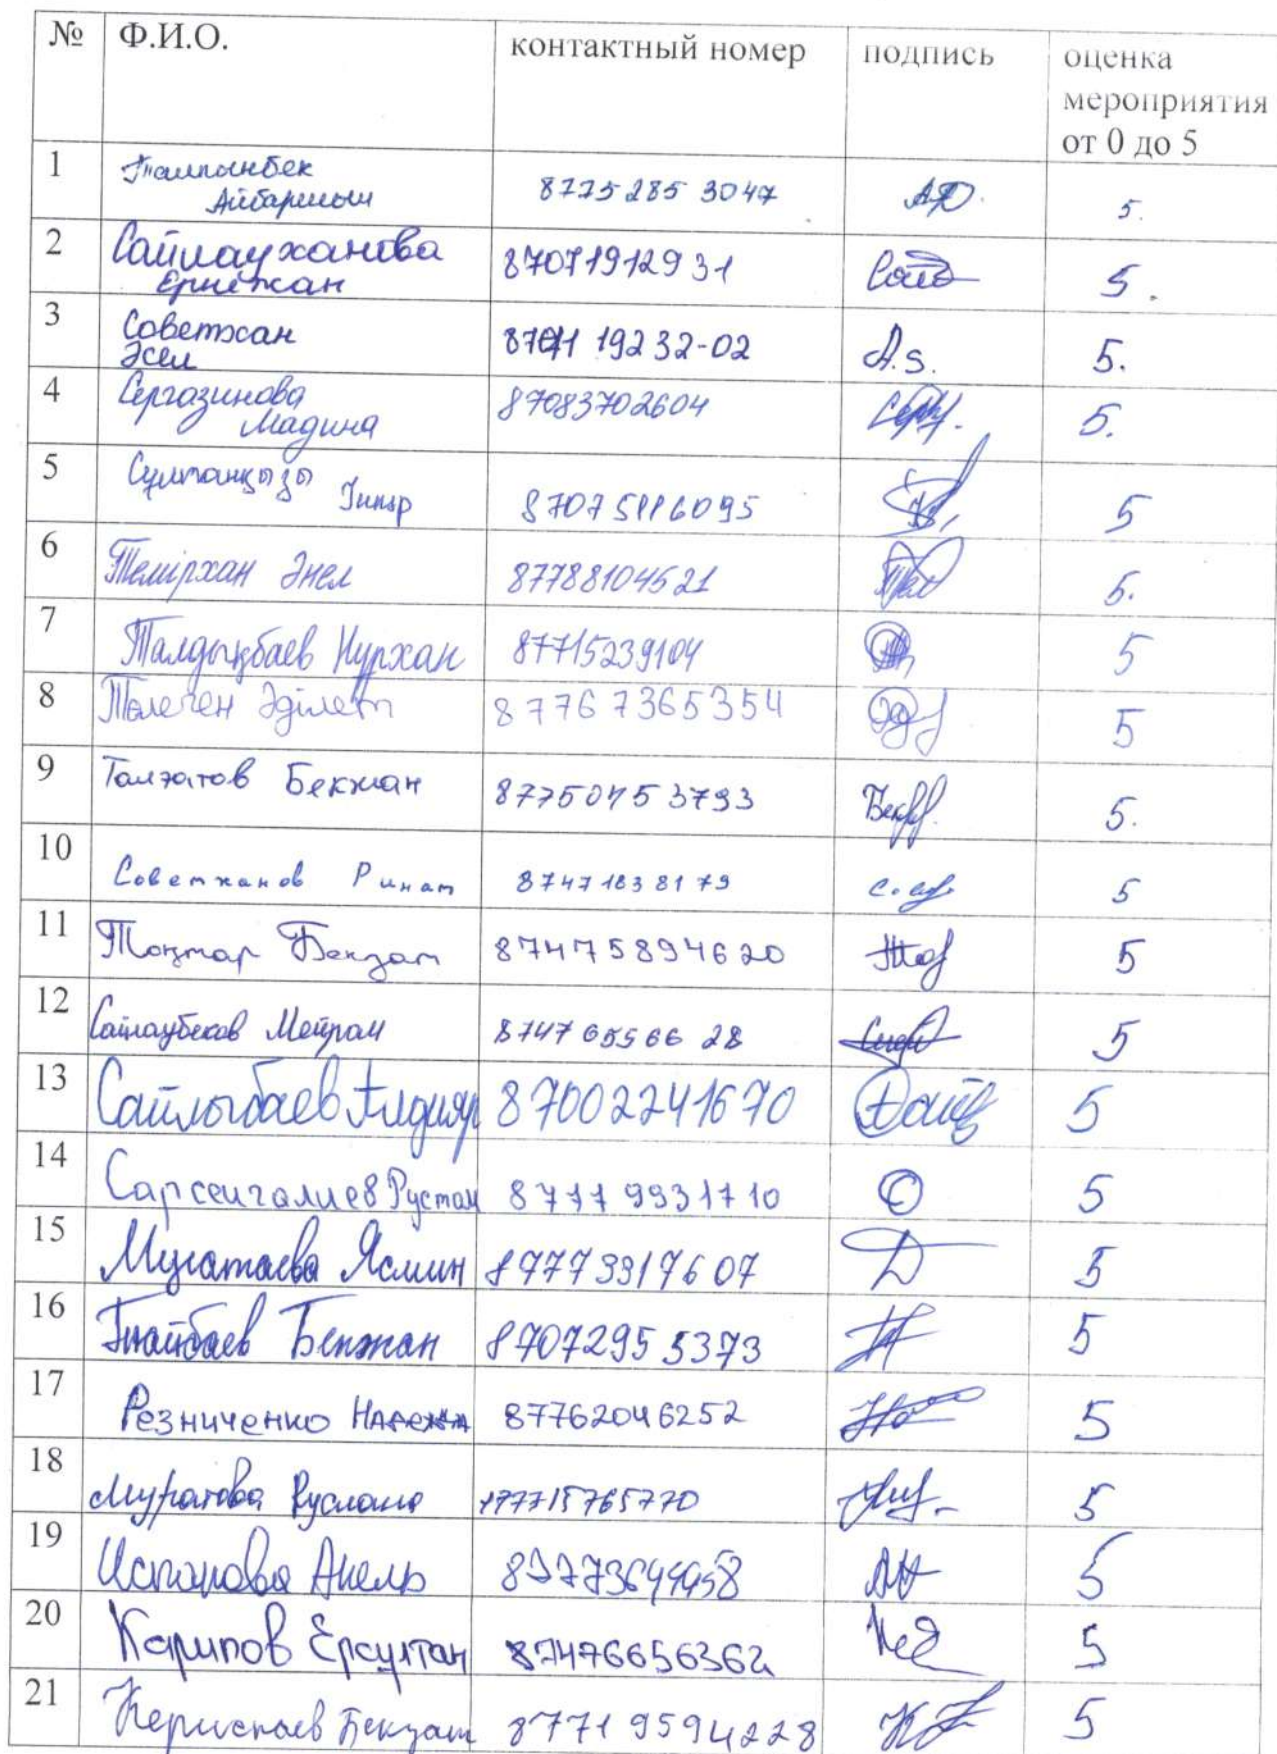 № Ф.И.О. контактный номер подпись оценка
мероприятия
от 0 до 5
1 8775 285 3047 5.
2 Сайлауханова 87071912931 5.
3 Советхан 19232-02 A.S. 5.
Әсел
4 Сергазинова 87083702604 5.
Мадина
5 Сұлтанқызы 87075116095 5
6 Темірхан Әнел 87788104521 5.
7 Талдықбаев Нурхан 87715239104 5
8 Төлеген Әділет 87767365354 5
9 Бекжан 87750753793 5.
10 Советханов Ринат 8747 183 81 79 5
11 Тоқтар Бекзат 87475894620 5
12 Сайлаубеков Мейрам 8747 65566 28 5
13 Сайлыбаев Алдияр 87002241670 5
14 Сарсенгалиев Рустам 8777 9931710 5
15 Ясмин 87773317607 5
16 Бекжан 87072955373 5
17 Резниченко 87762046252 5
18 Муратова Руслана 5
19 Испанова Анель 5
20 Карипов Ерсултан 87476656362 5
21 Бекзат 87719594228 5